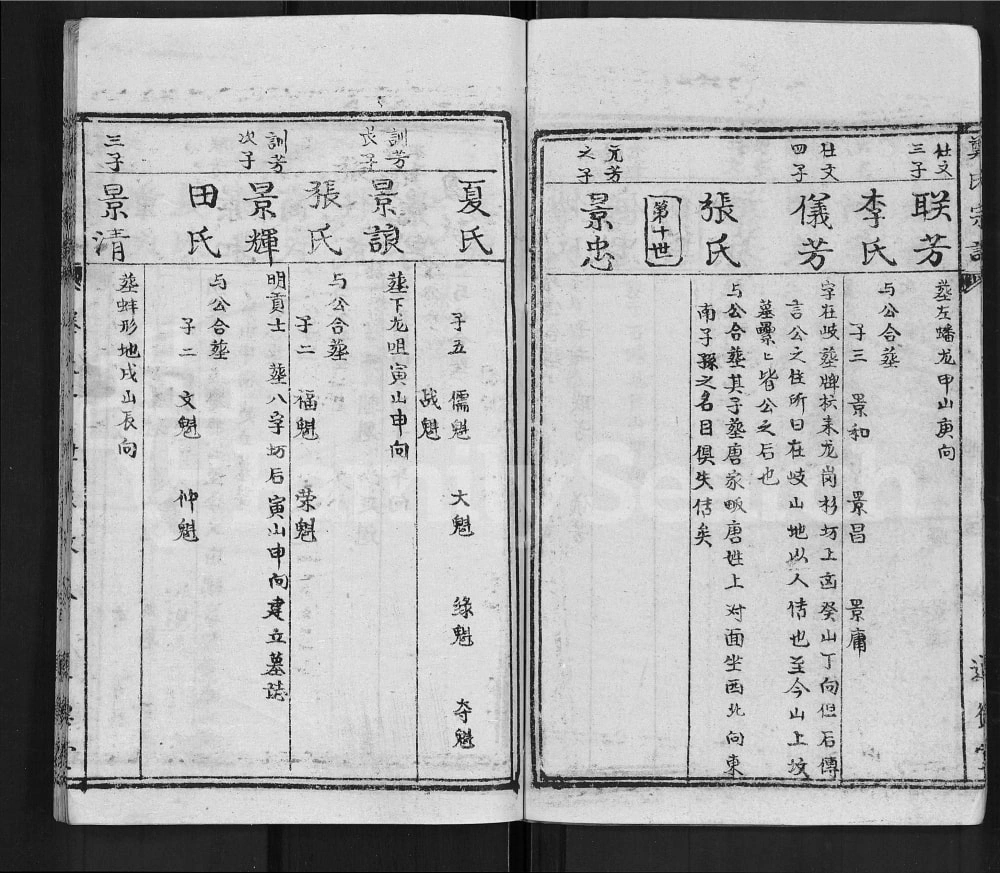 杜文
三子
联芳
葬左蟠龙甲山庚向
李氏
与公合葬
子三　景和　景昌　景庸
杜文
四子
儀芳
字在岐葬牌枋来龙岗杉坊上凼癸山丁向但石傳
言公之住所曰在岐山地以人传也至今山上坟
墓累上皆公之后也
張氏
与公合葬其子葬唐家畈唐姓上对面坐西北向東
南子孫之名目俱失传矣
第十世
元芳
之子
景忠
夏氏
子五　儒魁　大魁　緣魁　夺魁
战魁
訓芳
長子
景諒
葬下龙咀寅山申向
張氏
与公合葬
子二　福魁　荣魁
訓芳
次子
景輝
明貢士　葬八字坊后寅山申向建立墓誌
田氏
与公合葬
子二　文魁　仲魁
三子
景清
葬蚌形地戌山辰向